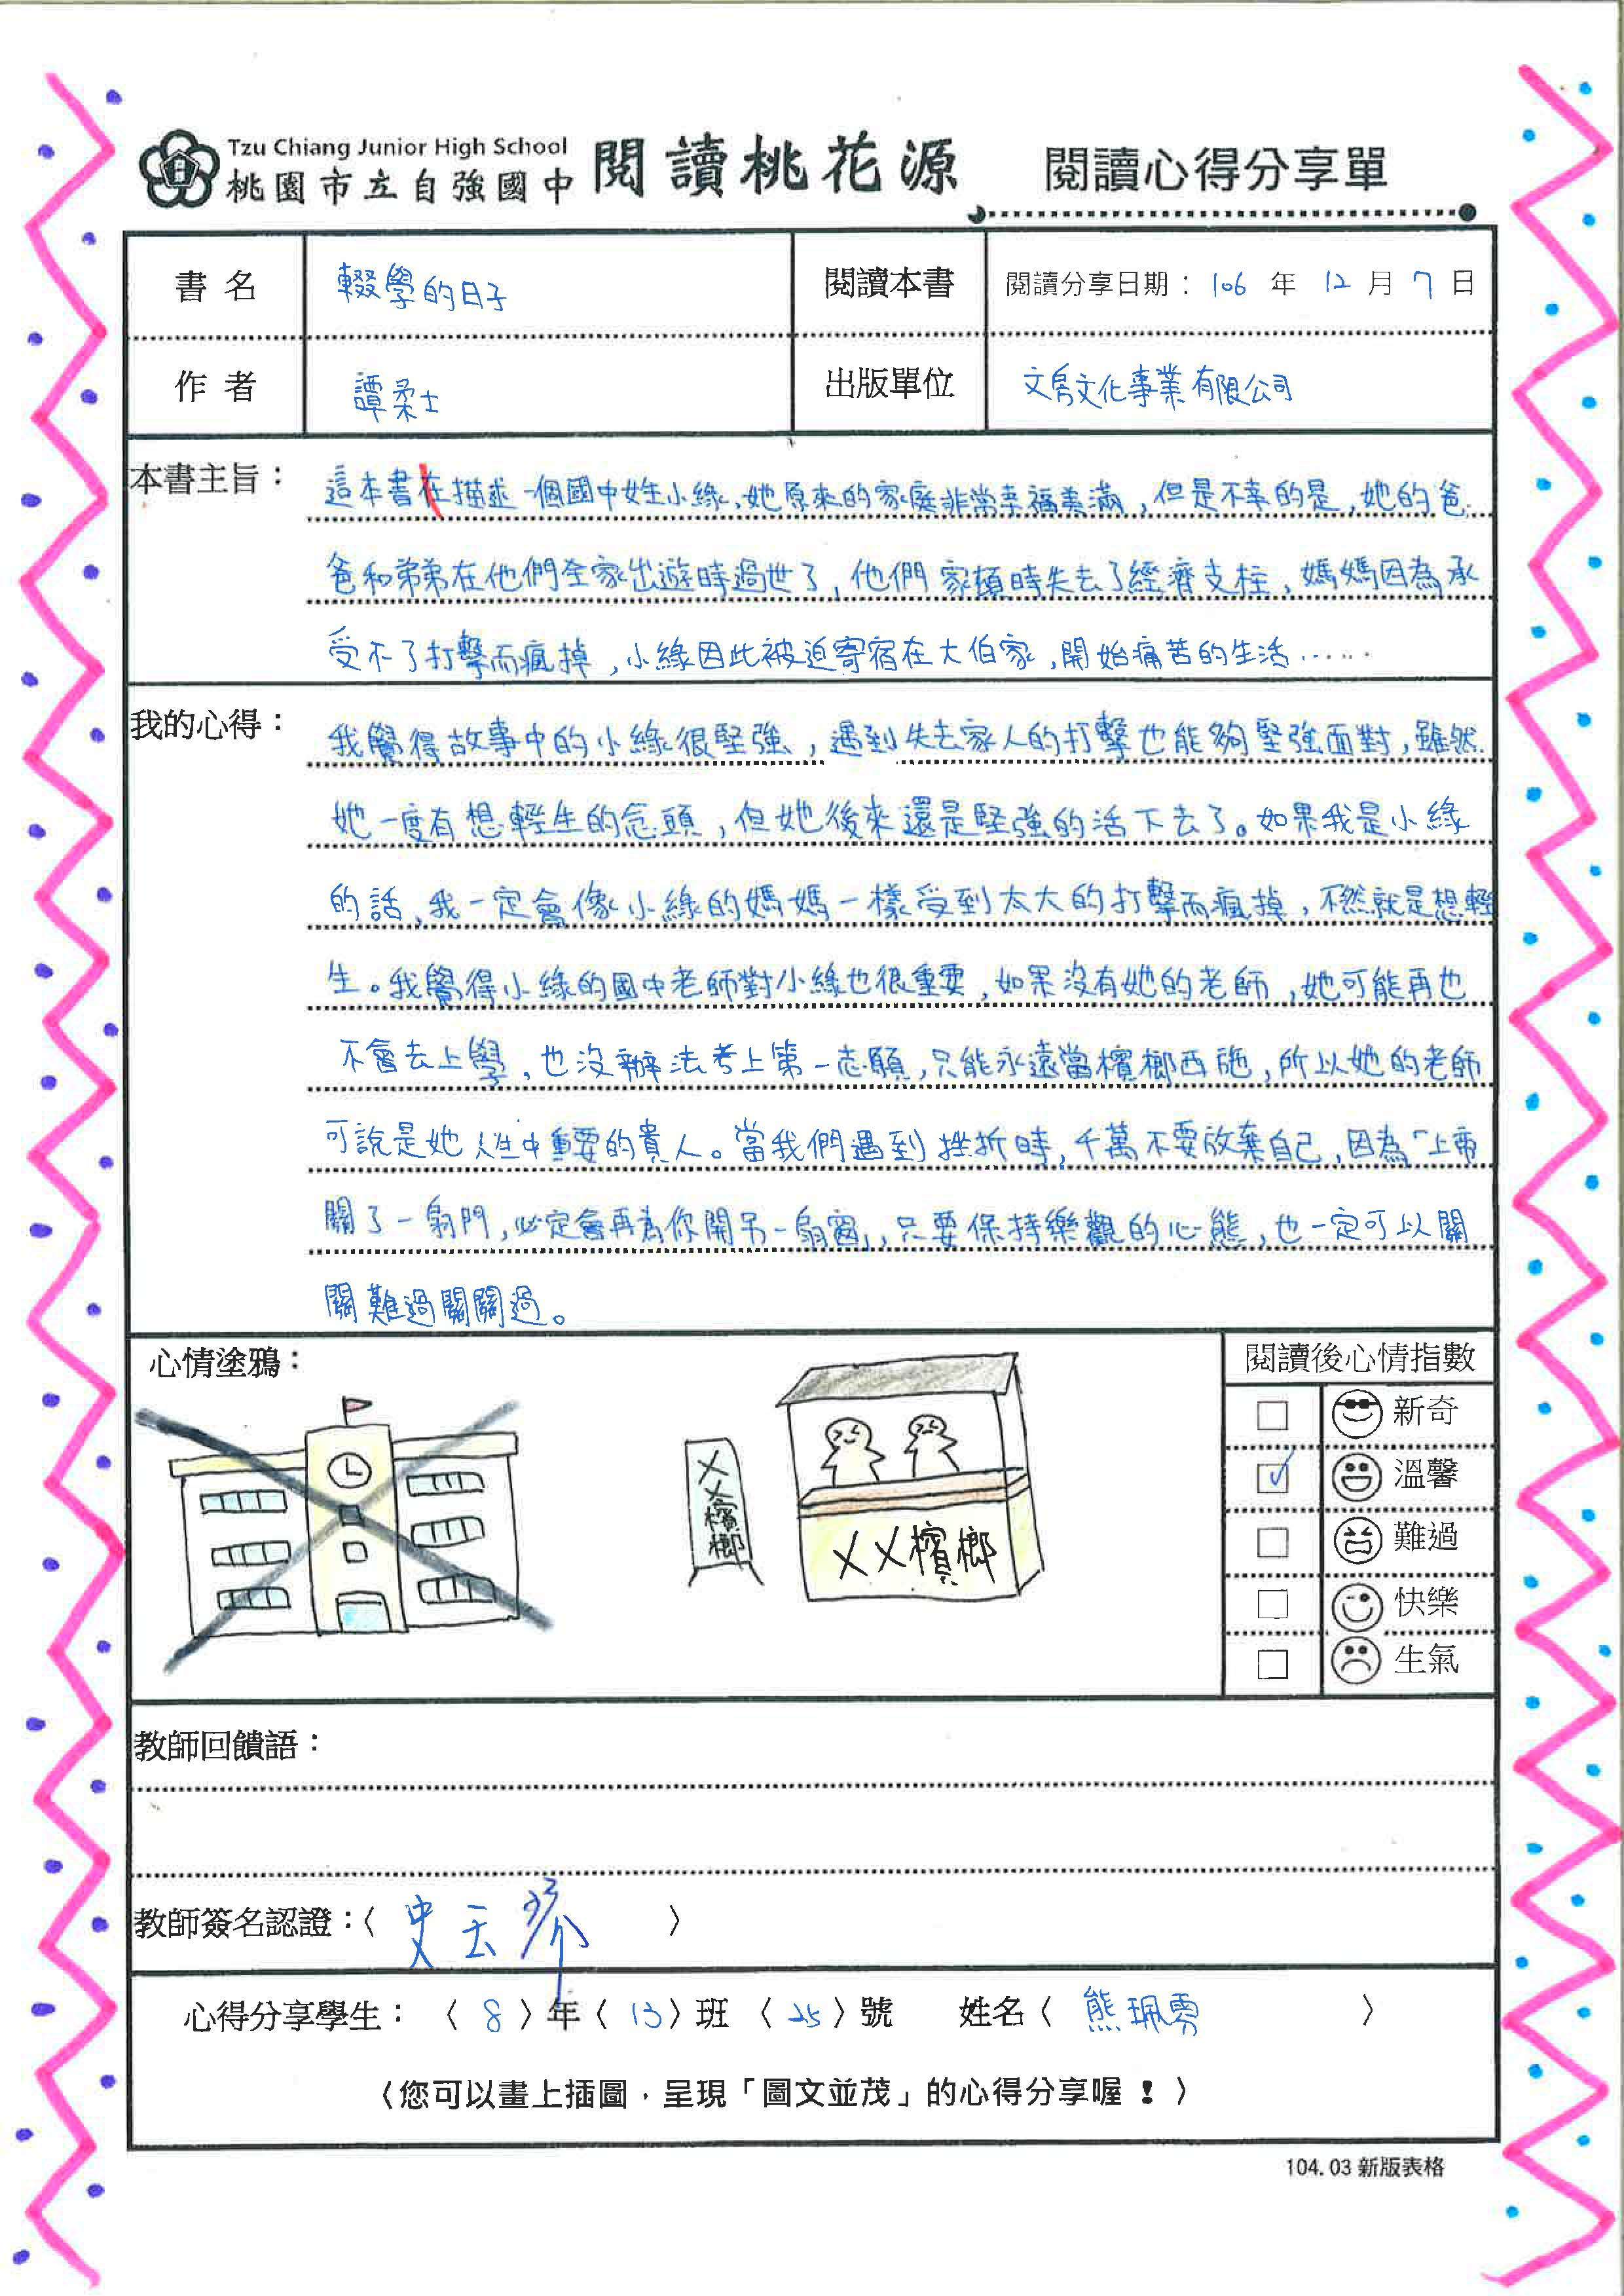 Tzu Chiang Junior High School
桃園市立自強國中 閱讀桃花源 閱讀心得分享單
書名 輟學的日子 閱讀本書 閱讀分享日期：106 年 12 月 7 日
作者 譚柔士 出版單位 文房文化事業有限公司
本書主旨：這本書在描述一個國中女生小綠,她原來的家庭非常幸福美滿,但是不幸的是,她的爸
爸和弟弟在他們全家出遊時過世了,他們家頓時失去了經濟支柱,媽媽因為承
受不了打擊而瘋掉,小綠因此被迫寄宿在大伯家,開始痛苦的生活……
我的心得：我覺得故事中的小綠很堅強,遇到失去家人的打擊也能夠堅強面對,雖然
她一度有想輕生的念頭,但她後來還是堅強的活下去了。如果我是小綠
的話,我一定會像小綠的媽媽一樣受到太大的打擊而瘋掉,不然就是想輕
生。我覺得小綠的國中老師對小綠也很重要,如果沒有她的老師,她可能再也
不會去上學,也沒辦法考上第一志願,只能永遠當檳榔西施,所以她的老師
可說是她人生中重要的貴人。當我們遇到挫折時,千萬不要放棄自己,因為「上帝
關了一扇門,必定會再為你開另一扇窗」,只要保持樂觀的心態,也一定可以關
關難過關關過。
心情塗鴉：
XX檳榔
XX檳榔
閱讀後心情指數
新奇
✓ 溫馨
難過
快樂
生氣
教師回饋語：
教師簽名認證：〈 史云 〉
心得分享學生：〈 8 〉年〈 13 〉班〈 25 〉號 姓名〈 熊珮雰 〉
〈您可以畫上插圖，呈現「圖文並茂」的心得分享喔！〉
104.03 新版表格